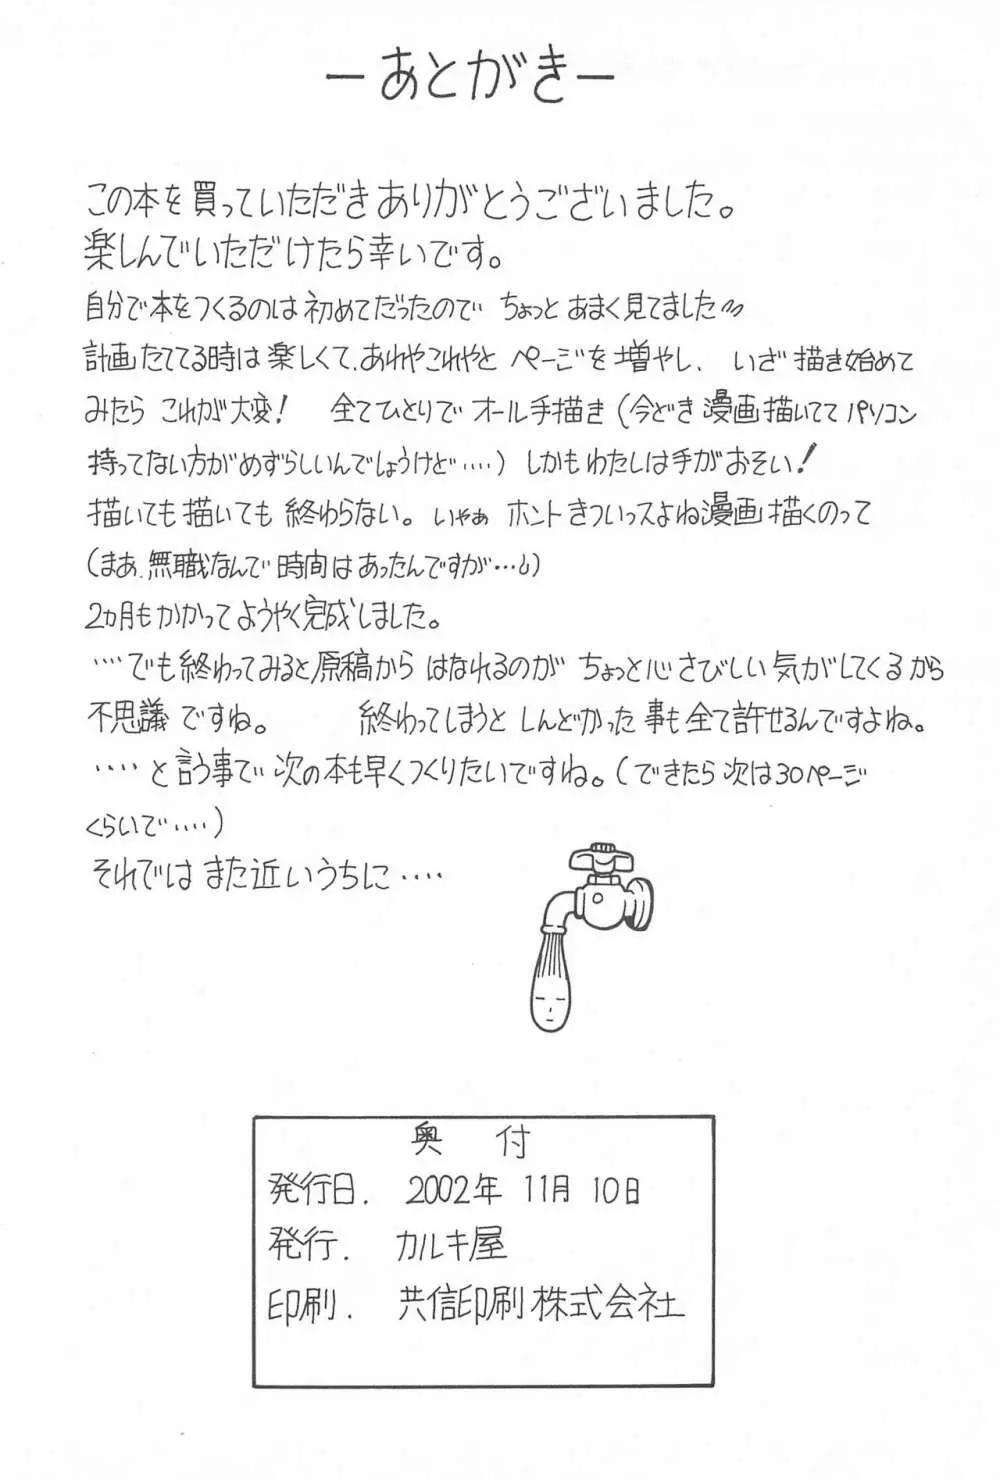 ーあとがきー
この本を買っていただきありがとうございました。
楽しんでいただけたら幸いです。
自分で本をつくるのは初めてだったので ちょっと あまく見てました
計画たててる時は楽しくて、あれやこれやと ページを増やし、 いざ 描き始めて
みたら これが大変! 全てひとりで オール手描き(今どき漫画描いてて パソコン
持ってない方がめずらしいんでしょうけど‥‥‥)しかもわたしは手がおそい!
描いても描いても 終わらない。いやぁ ホントきついっスよね漫画描くのって
(まあ、無職なんで時間はあったんですが‥‥)
2ヵ月もかかってようやく完成しました。
‥‥でも終わってみると原稿から はなれるのが ちょっと心さびしい気がしてくるから
不思議ですね。 終わってしまうと しんどかった事も全て許せるんですよね。
‥‥‥と言う事で次の本も早くつくりたいですね。(できたら次は30ページ
くらいで‥‥‥)
それでは また近いうちに‥‥
奥 付
発行日. 2002年 11月 10日
発行. カルキ屋
印刷. 共信印刷株式会社